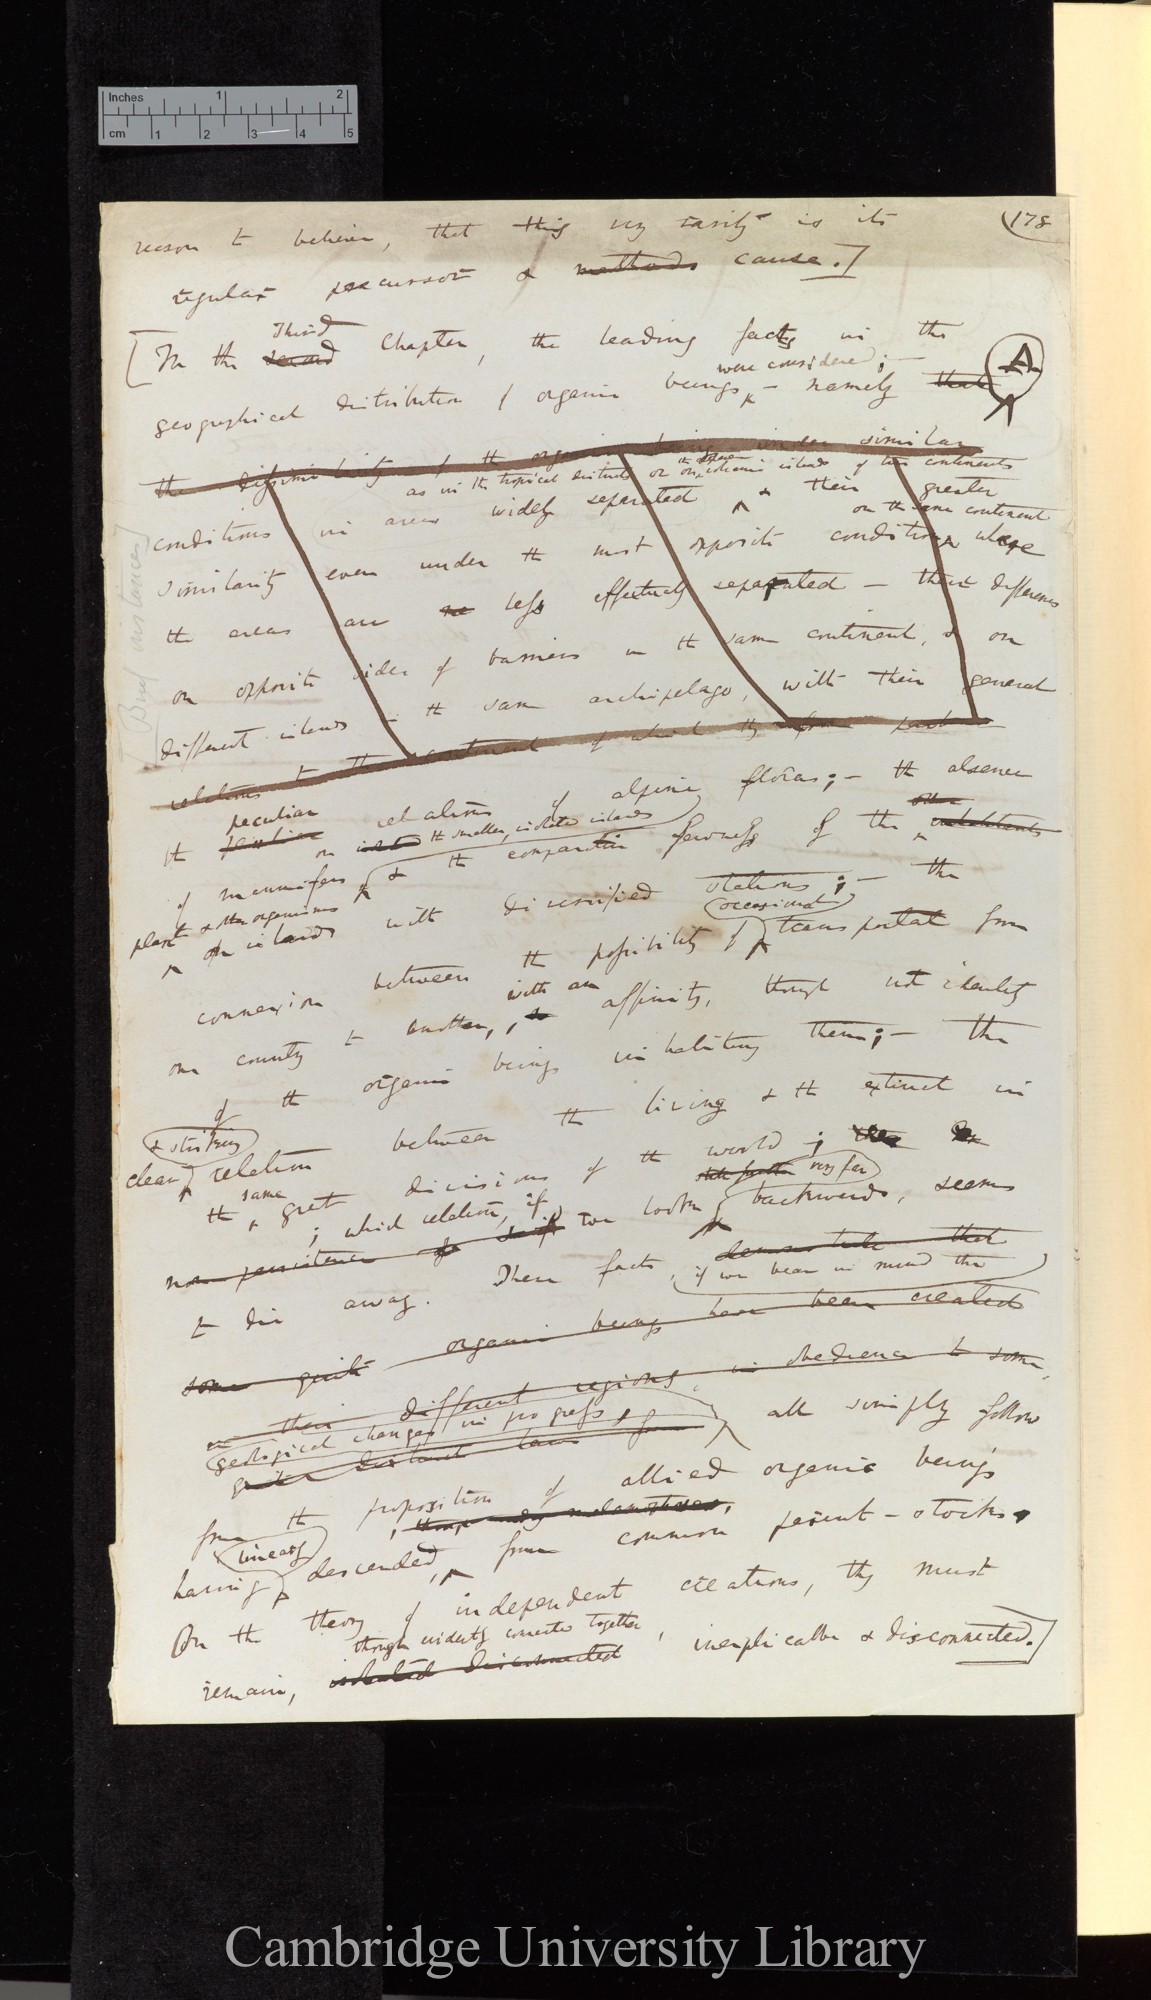 Inches 1 2
cm 1 2 3 4 5
178
reason to believe, that this very rarity is its
regular precursor & methods cause.]
Third
[In the second Chapter, the leading facts in the
were considered;—
geographical distribution of organic beings, — namely that
A
the dissimilarity of the organic beings under similar
as in the tropical districts or on the volcanic islands of two continents
conditions in areas widely separated & their greater
on the same continent
similarity even under the most opposite conditions where
the areas are less effectually separated — their differences
on opposite sides of barriers in the same continent, & on
different islands in the same archipelago, with their general
relations to the continent of which they form part
[Brief instances]
peculiar
the peculiar relations of alpine floras; — the absence
on the smaller, isolated islands
other
of mammifers & the comparative fewness of the inhabitants
plants & other organisms
on islands with diversified stations; — the
occasional
connexion between the possibility of transportal from
with an
one country to another, affinity, though not identity
of the organic beings inhabiting them; — the
& striking
clear relation between the living & the extinct in
same
the & great divisions of the world;
; which relation, if we look very far backwards, seems
non persistence
to die away. These facts, demonstrate that
if we bear in mind the
some quite organic beings have been created
in their different regions, in obedience to some
geological changes in progress, all simply follow
quite distinct laws
from the proposition of allied organic beings
lineally
having descended, from common parent-stocks.
On the theory of independent creations, they must
though evidently connected together
remain, isolated disconnected, inexplicable & disconnected.]
Cambridge University Library